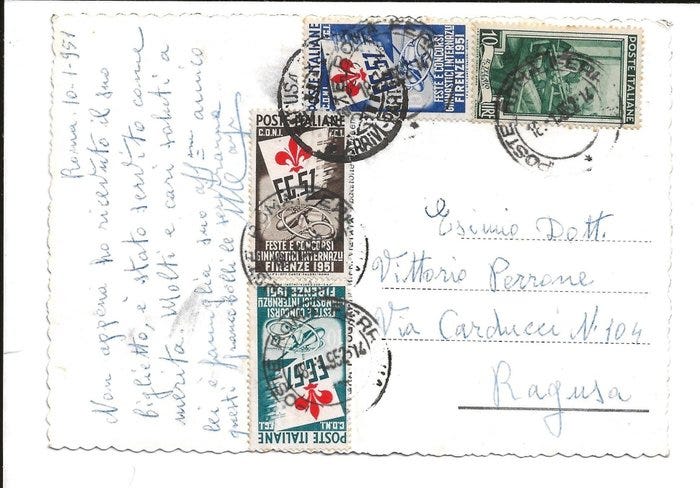 Roma 10-1-1951
Non appena ho ricevuto il suo
biglietto, è stato servito come
merita. Molti e cari saluti a
lei e famiglia suo aff.mo amico
questi francobolli le
POSTE ITALIANE
C.O.N.I. F.G.I.
F.G.51
FESTE E CONCORSI
GINNASTICI INTERNAZ.LI
FIRENZE 1951
10 LIRE
POSTE ITALIANE
POSTE ITALIANE
C.O.N.I. F.G.I.
F.G.51
FESTE E CONCORSI
GINNASTICI INTERNAZ.LI
FIRENZE 1951
POSTE ITALIANE
C.O.N.I. F.G.I.
F.G.51
FESTE E CONCORSI
GINNASTICI INTERNAZ.LI
FIRENZE 1951
POSTE ROMA FERR
Esimio Dott.
Vittorio Perrone
Via Carducci N° 104
Ragusa